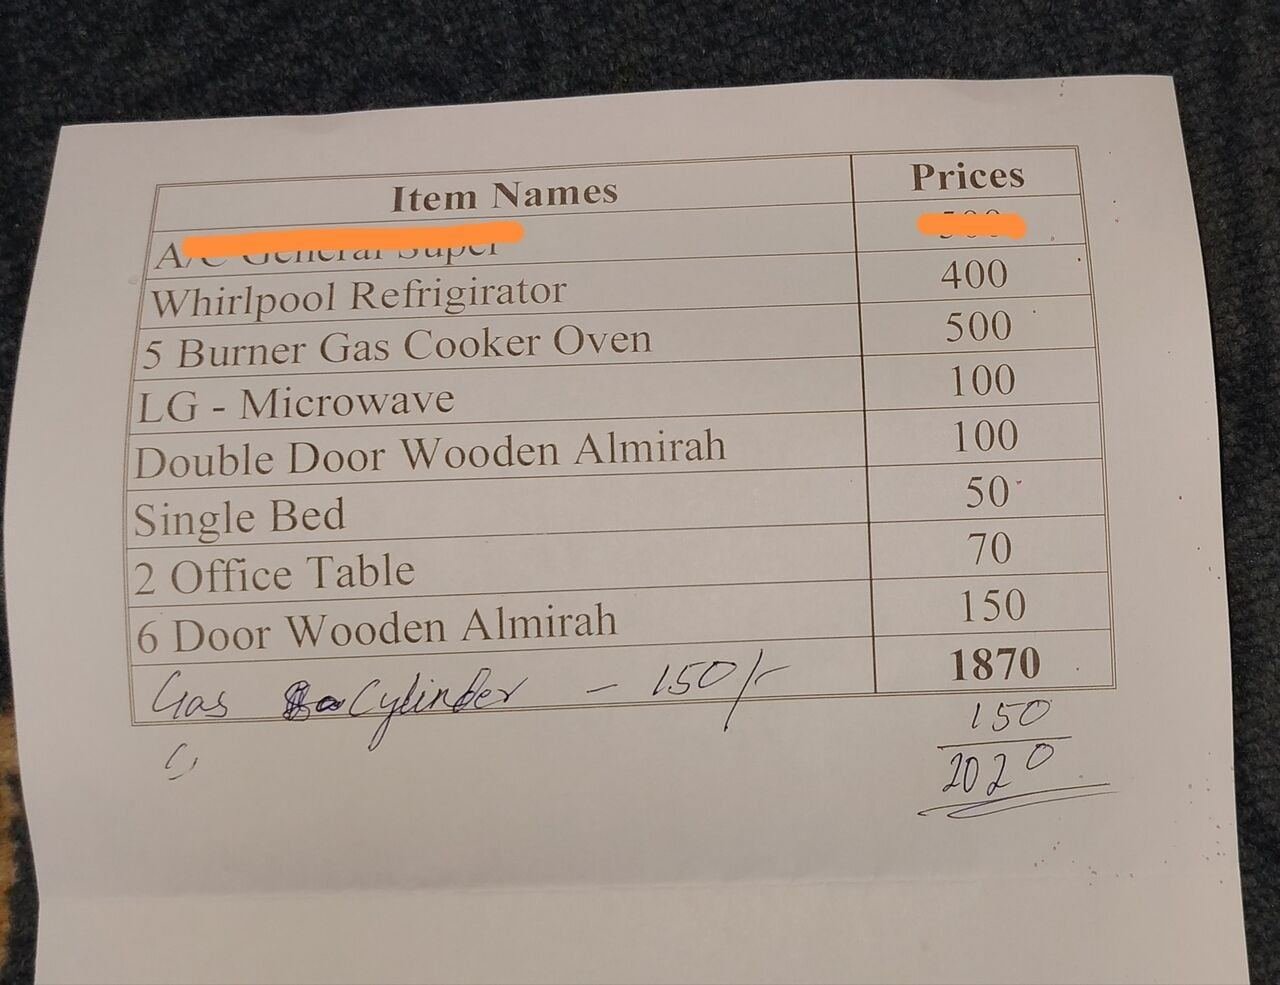 Item Names Prices
A/C General Super 500
Whirlpool Refrigirator 400
5 Burner Gas Cooker Oven 500
LG - Microwave 100
Double Door Wooden Almirah 100
Single Bed 50
2 Office Table 70
6 Door Wooden Almirah 150
1870
Gas Cylinder - 150/- 150
2020